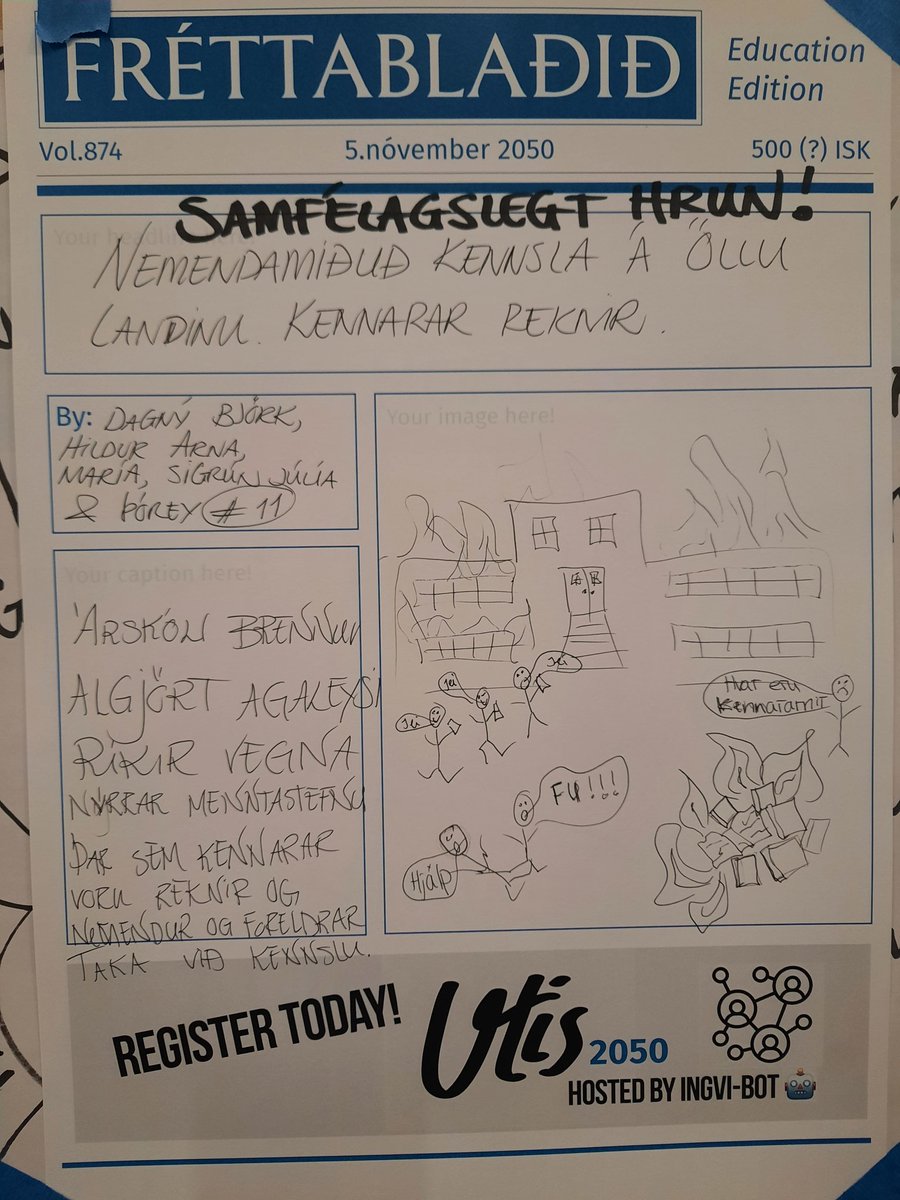 FRÉTTABLAÐIÐ
Education
Edition
Vol.874
5.nóvember 2050
500 (?) ISK
SAMFÉLAGSLEGT HRUN!
Your headline here!
NEMENDAMIÐUÐ KENNSLA Á ÖLLU
LANDINU. KENNARAR REKNIR.
By: DAGNÝ BJÖRK,
HILDUR ARNA,
MARÍA, SIGRÚN JÚLÍA
& ÞÓREY #11
Your caption here!
ÁRSKÓLI BRENNUR
ALGJÖRT AGALEYSI
RÍKIR VEGNA
NÝRRAR MENNTASTEFNU
ÞAR SEM KENNARAR
VORU REKNIR OG
NEMENDUR OG FORELDRAR
TAKA VIÐ KENNSLU.
Your image here!
Hvar eru
kennararnir
FU!!!
Hjálp
REGISTER TODAY!
Utis
2050
HOSTED BY INGVI-BOT